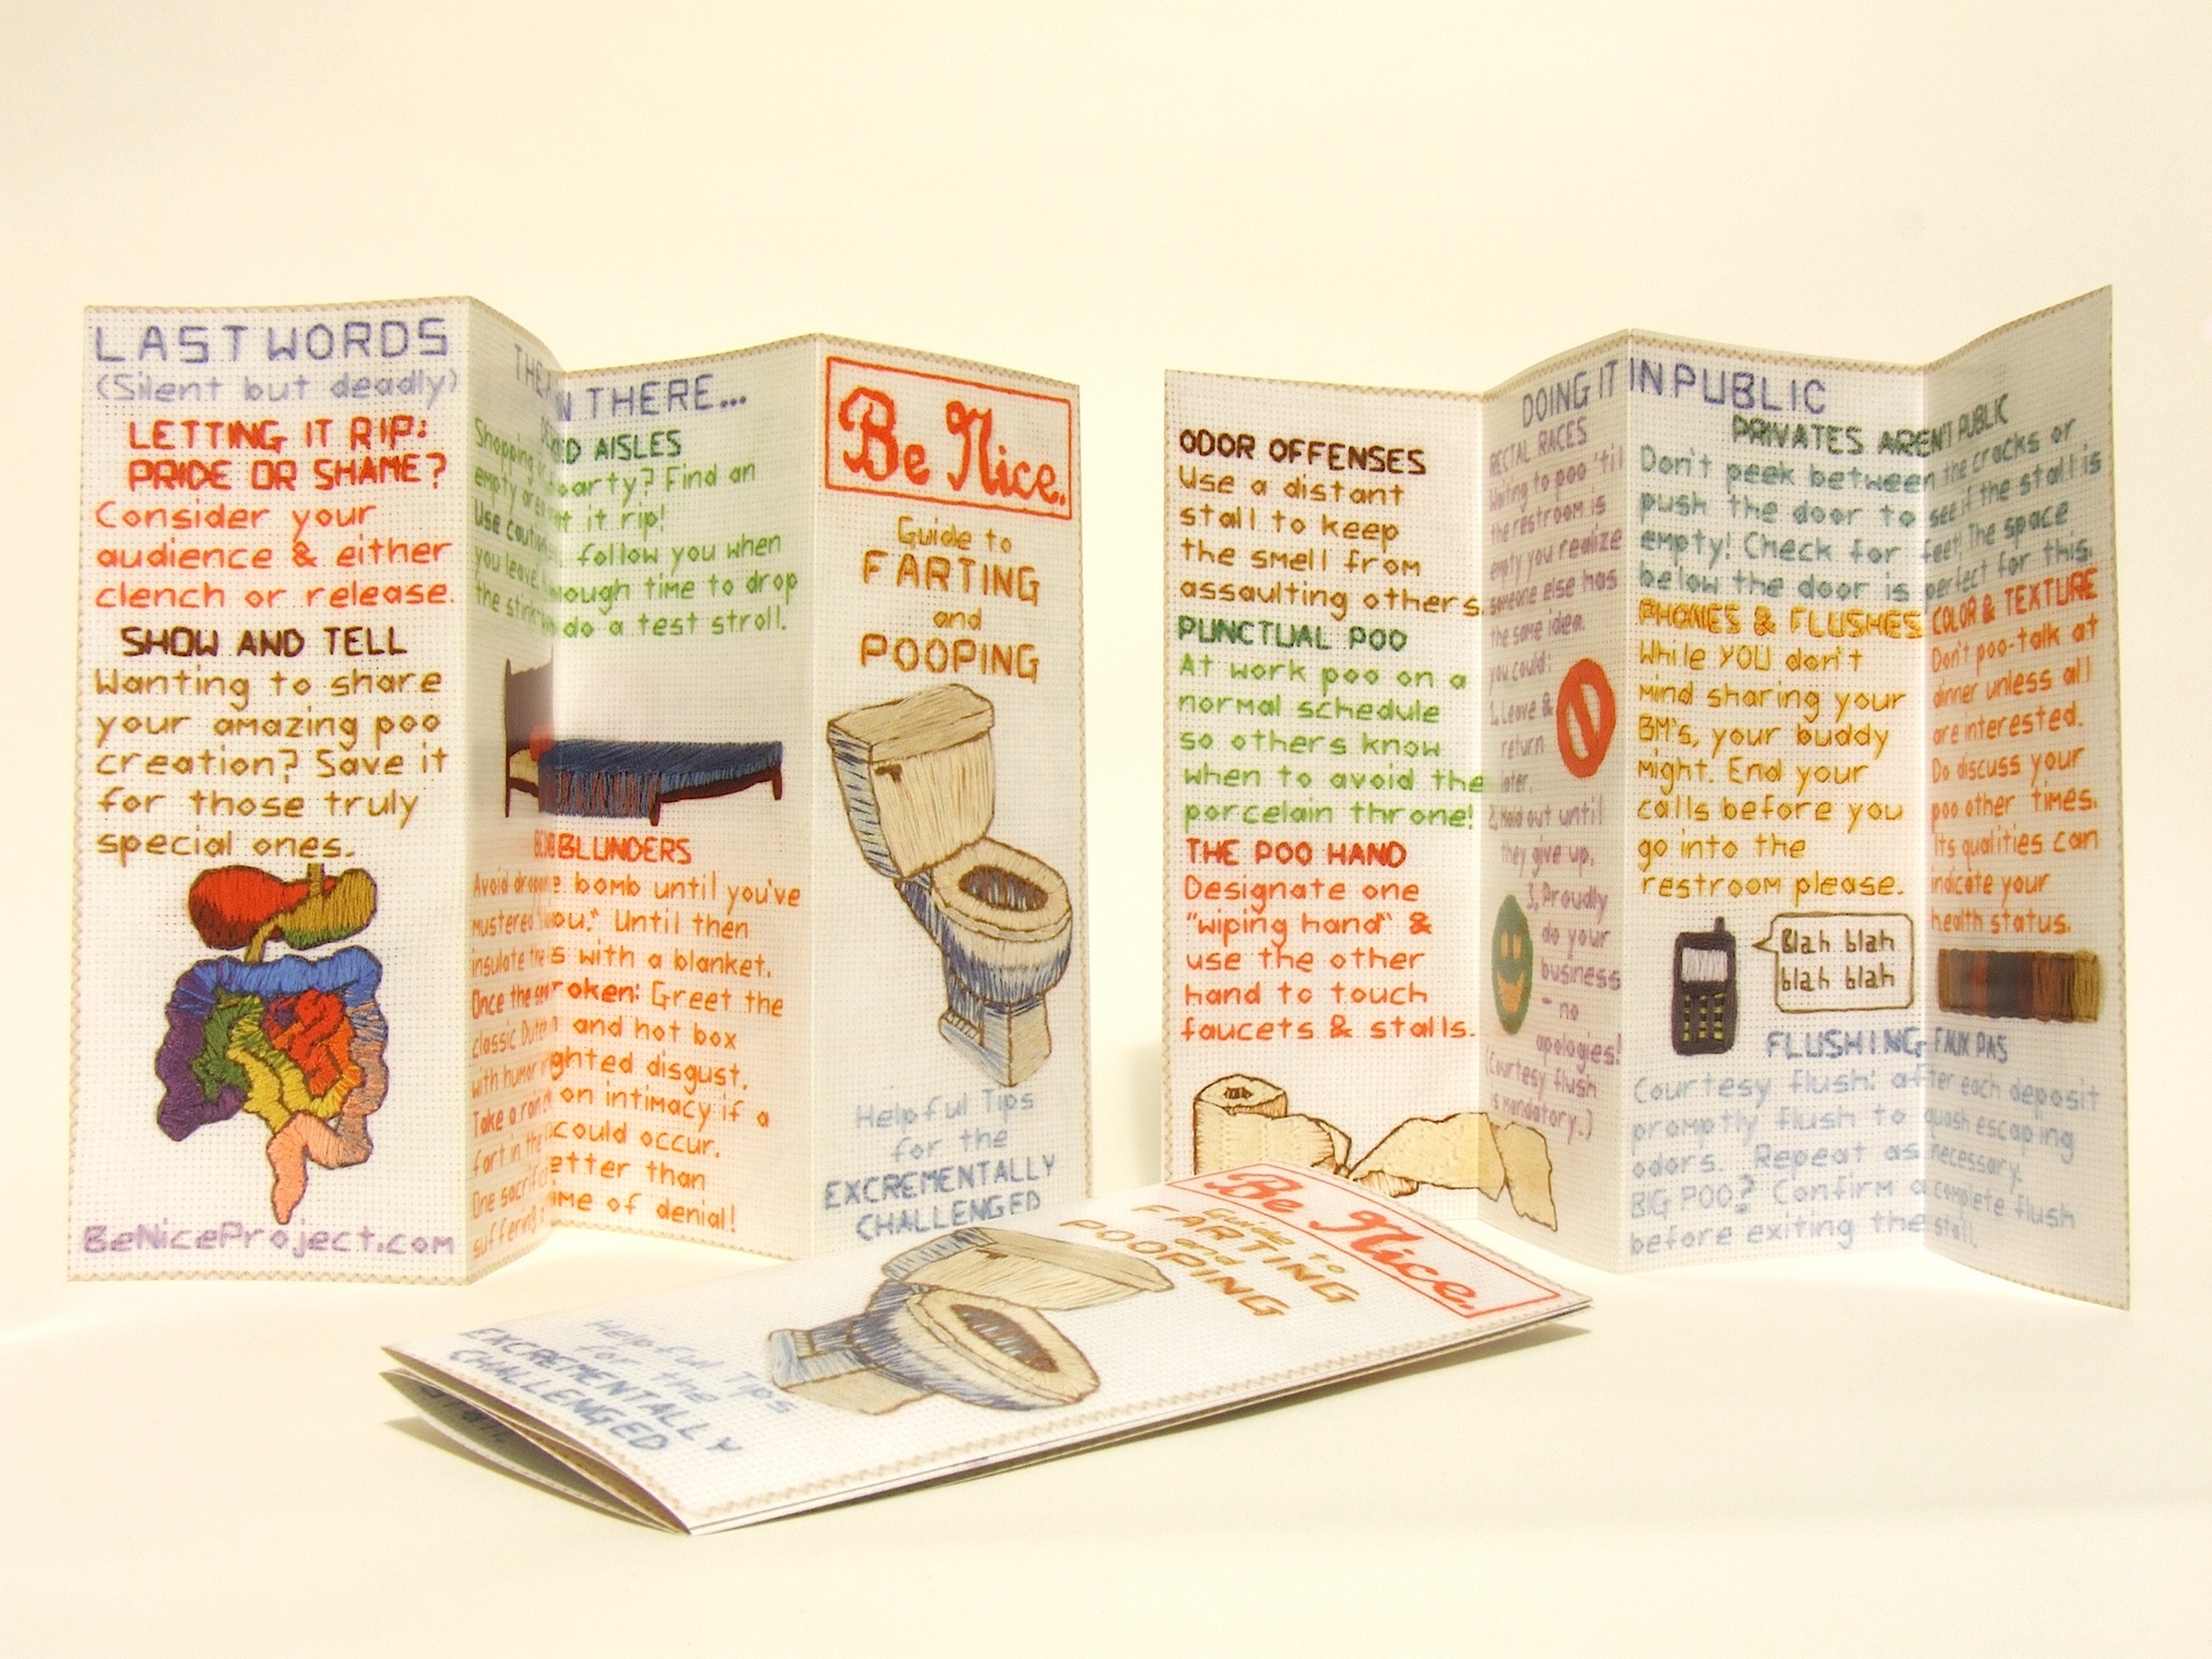 LAST WORDS
(Silent but deadly)
LETTING IT RIP:
PRIDE OR SHAME?
Consider your
audience & either
clench or release.
SHOW AND TELL
Wanting to share
your amazing poo
creation? Save it
for those truly
special ones.
BeNiceProject.com
THERE...
AISLES
Shopping
empty party? Find an
it rip!
follow you when
you leave. time to drop
the do a test stroll.
BLUNDERS
Avoid bomb until you've
mustered Until then
insulate with a blanket.
Once the Greet the
classic and hot box
with humor disgust.
Take a on intimacy if a
fart in the could occur.
One than
suffering of denial!
Be Nice.
Guide to
FARTING
and
POOPING
Helpful Tips
for the
EXCREMENTALLY
CHALLENGED
DOING IT IN PUBLIC
ODOR OFFENSES
Use a distant
stall to keep
the smell from
assaulting others.
PUNCTUAL POO
At work poo on a
normal schedule
so others know
when to avoid the
porcelain throne!
THE POO HAND
Designate one
"wiping hand" &
use the other
hand to touch
faucets & stalls.
RECTAL RACES
Waiting to poo 'til
the restroom is
empty you realize
someone else has
the same idea.
you could:
1. Leave &
return
later.
2. Hold out until
they give up.
3. Proudly
do your
business
- no
apologies!
(Courtesy flush
is mandatory.)
PRIVATES AREN'T PUBLIC
Don't peek between the cracks or
push the door to see if the stall is
empty! Check for feet! The space
below the door is perfect for this.
PHONES & FLUSHES
While YOU don't
mind sharing your
BM's, your buddy
might. End your
calls before you
go into the
restroom please.
Blah blah
blah blah
COLOR & TEXTURE
Don't poo-talk at
dinner unless all
are interested.
Do discuss your
poo other times.
Its qualities can
indicate your
health status.
FLUSHING FAUX PAS
Courtesy flush: after each deposit
promptly flush to quash escaping
odors. Repeat as necessary.
BIG POO? Confirm a complete flush
before exiting the stall.
Be Nice.
Guide to
FARTING
and
POOPING
Helpful Tips
for the
EXCREMENTALLY
CHALLENGED